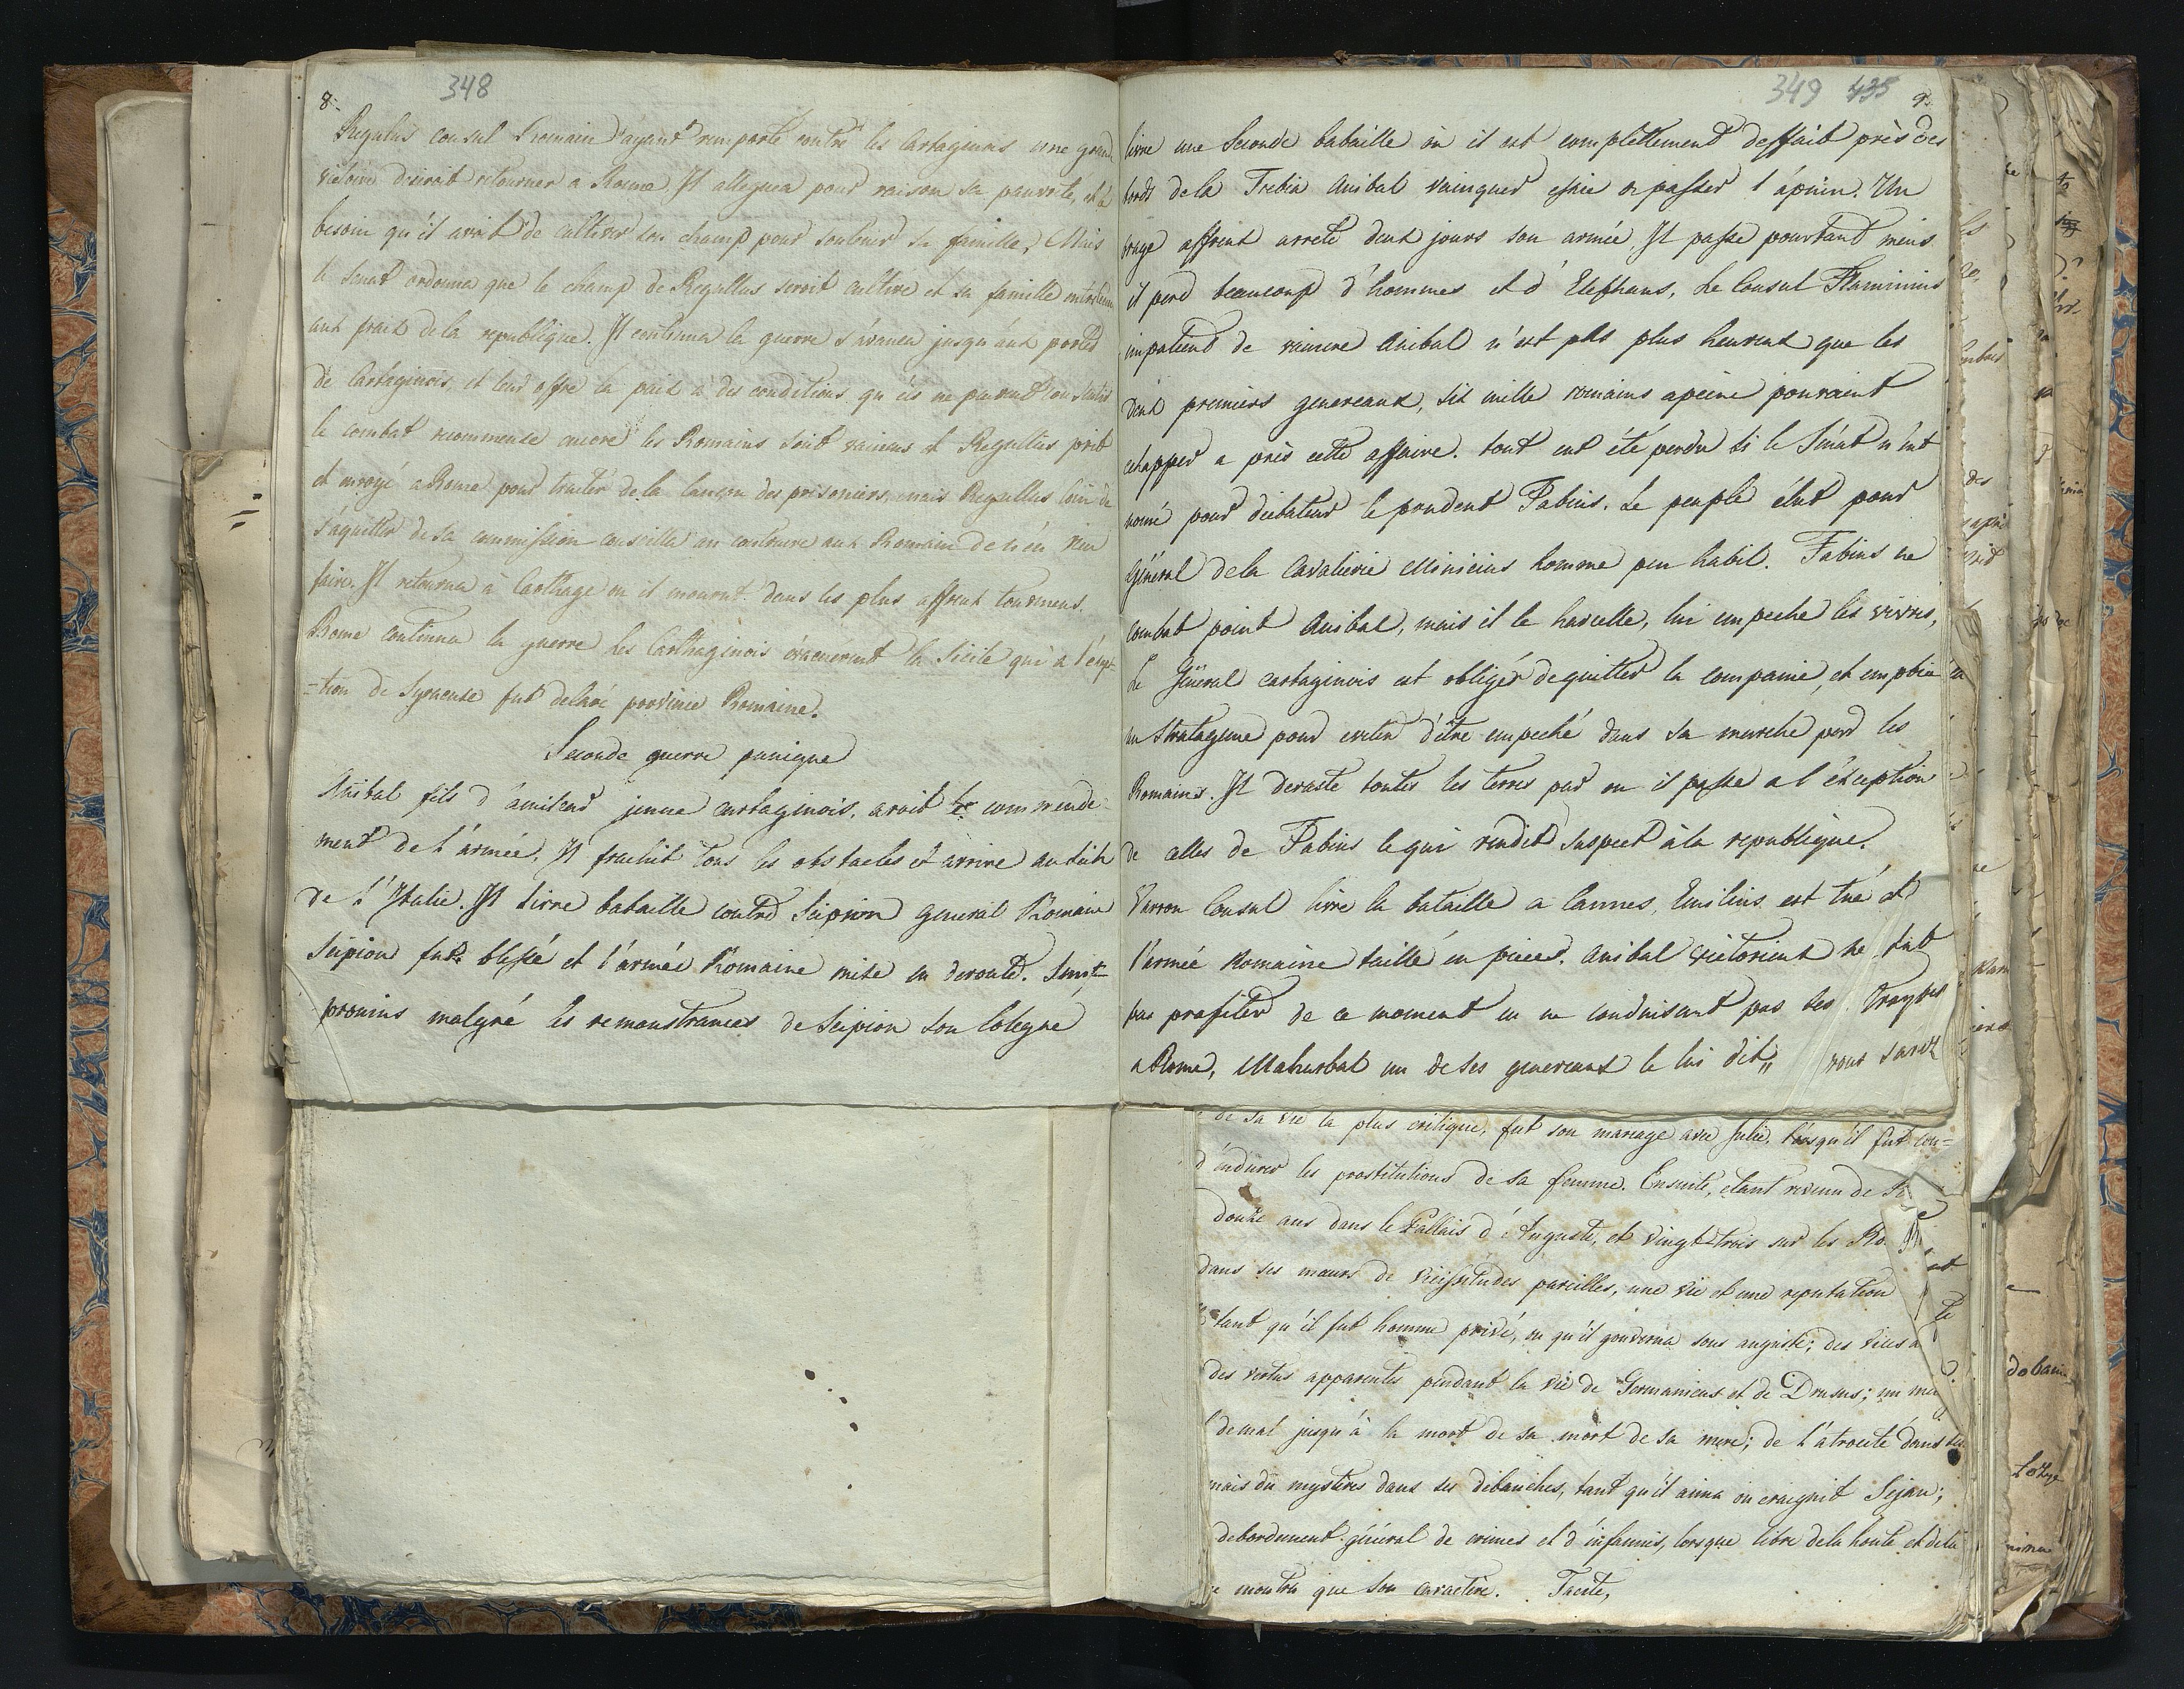 348
8.
Regulus consul Romain ayant remporté contre les Cartaginois une grand
victoire desirait retourner a Rome. Il allegua pour raison sa pauvrete, et le
besoin qu'il avait de cultiver son champ pour soutenir sa famille, Mais
le senat ordonna que le champ de Regullus seroit cultivé et sa famille
aux frais de la republique. Il continua la guerre s'avança jusqu'aux portes
de Cartaginois, et leur offre la paix a des conditions qu'ils ne peuvent
le combat recommense encore les Romains sont vaincus et Regullus prit
et envoyé a Rome pour traiter de la des prisoniers, mais Regullus loin de
s'aquitter de sa commission conseilla au contraire aux Romain de n'en rien
faire. Il retourna à Carthage ou il mourut dans les plus affreux tourmens.
Rome continua la guerre les Carthaginois évacuerent la Sicile qui a l'éxep
=tion de Syracuse fut province Romaine.
Seconde guerre punique
Anibal fils d'amilcar jeune cartaginois, avoit le commende-
ment de l'armée, Il franchit tous les obstacles et arrive au
de l'Italie. Il livre bataille contre Scipion General Romain
Scipion fut blessé et l'armée Romaine mise en deroute. Sem
pronius malgré les remonstrances de Scipion son Colegue
349 435
9.
livre une seconde bataille où il est complettement deffait près des
bords de la Trebia Anibal vainqueur essaie de passer l'apénin. Un
orage affreux arrete deux jours son armée, Il passe pourtant mais
il perd beaucoup d'hommes et d'Elephans, Le Consul Flaminius
impatient de vaincre Anibal n'est pas plus heureux que les
deux premiers genereaux, six mille romains apeine pouraint
echapper a près cette affaire. tout eut été perdu si le Sénat n'eut
nomé pour dictateur le prudent Fabius. Le peuple élut pour
Général de la Cavalierie Minicius homme peu habil. Fabius ne
combat point Anibal, mais il le harcelle, lui empeche les vivres,
Le Général cartaginois est obligér de quitter la companie, et emploie
un Stratageme pour eviter d'être empeché dans sa marche par les
Romains. Il devaste toutes les terres par ou il passe a l'éxception
de celles de Fabius le qui rendit suspect à la republique.
Varron Consul livre la bataille a Cannes, Emilius est tué et
l'armée Romaine taillé en pieces. Anibal victorieux ne sut
pas profiter de ce moment en ne conduisant pas ses Trouppes
a Rome, Maharbal un de ses genereaux le lui dit,, vous savez
de sa vie la plus critique, fut son mariage avec Julie, lorsqu'il fut con=
d'endurer les prostitutions de sa femme. Ensuite, etant revenu de
douze ans dans le Pallais d'Auguste, et vingt-trois sur les Ro
dans ses mœurs de vicissitudes pareilles, une vie et une reputation
tant qu'il fut homme privé, ou qu'il gouverna sous auguste; des vices
des vertus apparentes pendant la vie de Germanicus et de Drusus; un
de mal jusqu'à la mort de sa mort de sa mere; de l'atrocité dans
mais du mysteres dans ses débauches, tant qu'il aima ou craignit Sejan;
debordement général de crimes et d'infamies, lorsque libre de la honte et de la
montra que son caractère. Tacite,